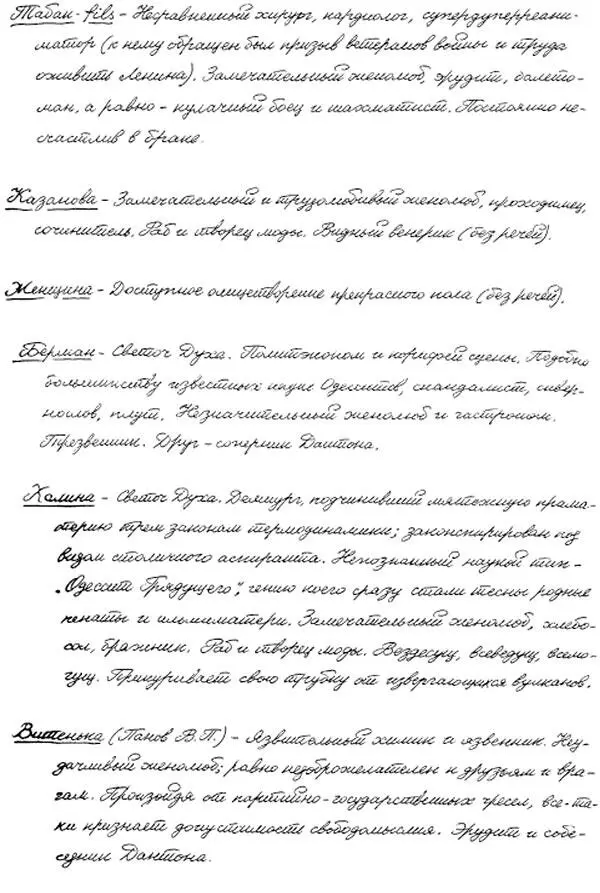 Табан-fils – Несравненный хирург, кардиолог, супердуперреани-
матор (к нему обращен был призыв ветеранов войны и труда
оживить Ленина). Замечательный женолюб, эрудит, балето-
ман, а равно – кулачный боец и шахматист. Постоянно не-
счастлив в браке.
Казанова – Замечательный и трудолюбивый женолюб, проходимец,
сочинитель. Раб и творец моды. Видный венерик (без речей).
Женщина – Доступное олицетворение прекрасного пола (без речей).
Берман – Светоч Духа. Политэконом и корифей сцены. Подобно
большинству известных науке Одесситов, скандалист, сквер-
нослов, плут. Незначительный женолюб и гастроном.
Трезвенник. Друг-соперник Дантона.
Калина – Светоч Духа. Демиург, подчинивший мятежную прама-
терию трем законам термодинамики; законспирирован под
видом столичного аспиранта. Непознанный наукой тип-
„Одессит Грядущего“, гению коего сразу стали тесны родные
пенаты и альмаматери. Замечательный женолюб, хлебо-
сол, бражник. Раб и творец моды. Вездесущ, всеведущ, всемо-
гущ. Прикуривает свою трубку от извергающихся вулканов.
Витенька (Панов В.П.) – Язвительный химик и язвенник. Неу-
дачливый женолюб; равно недоброжелателен к друзьям и вра-
гам. Произойдя от партийно-государственных чресел, все-та-
ки признает допустимость свободомыслия. Эрудит и собе-
седник Дантона.